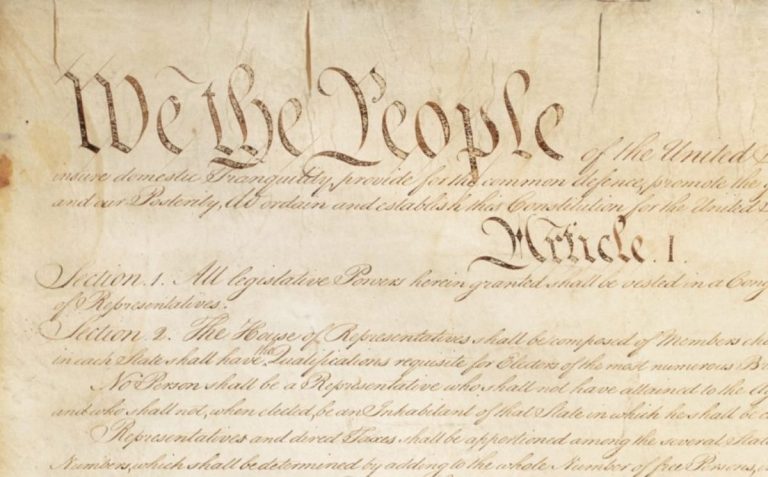 We the People of the United
insure domestic Tranquility, provide for the common defence, promote the
and our Posterity, do ordain and establish this Constitution for the United
Article. I.
Section. 1. All legislative Powers herein granted shall be vested in a Cong
of Representatives.
Section. 2. The House of Representatives shall be composed of Members cho
in each State shall have the Qualifications requisite for Electors of the most numerous Br
No Person shall be a Representative who shall not have attained to the Ag
and who shall not, when elected, be an Inhabitant of that State in which he shall be c
Representatives and direct Taxes shall be apportioned among the several State
Numbers, which shall be determined by adding to the whole Number of free Persons, i